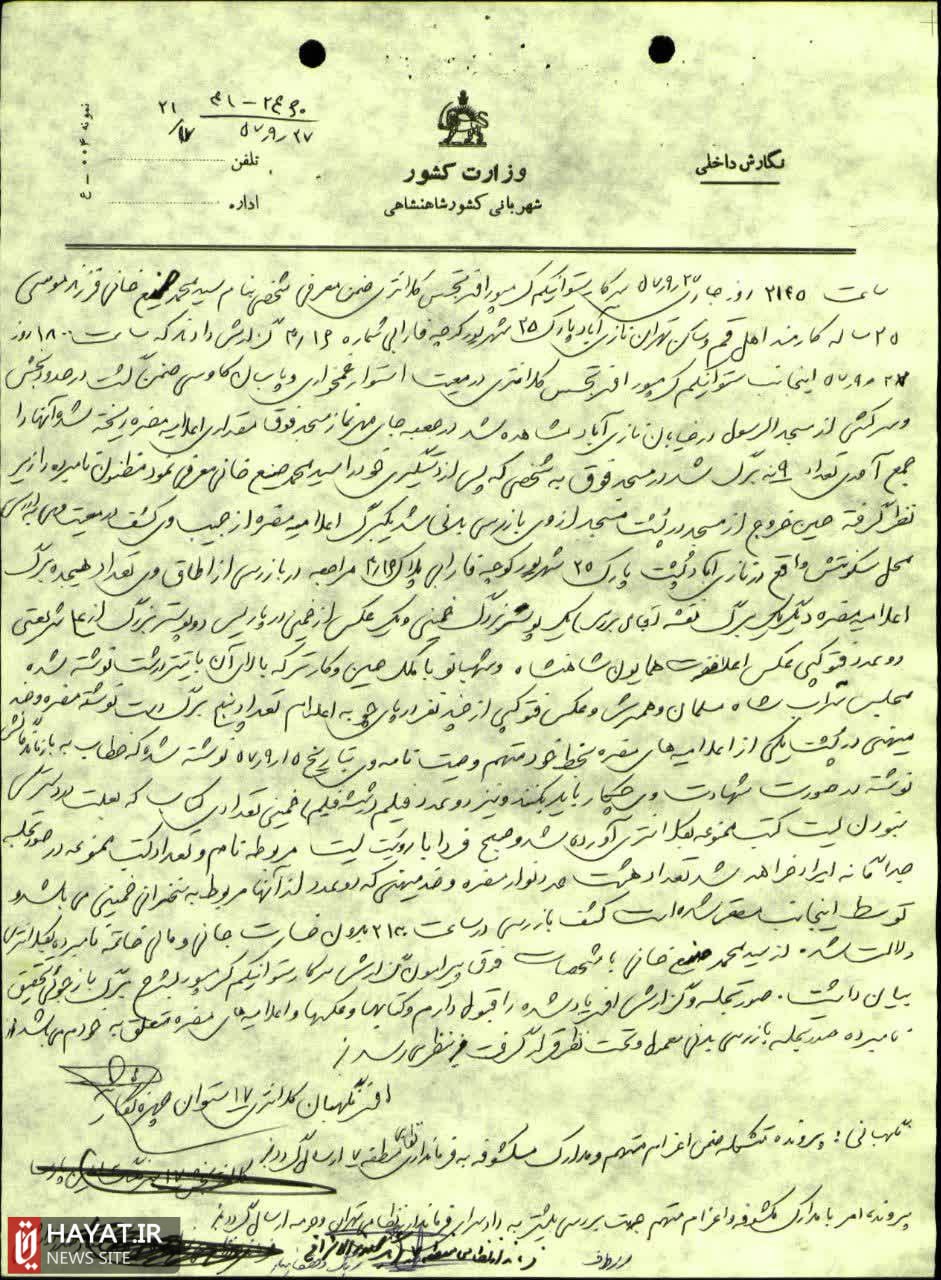 نگارش داخلی
وزارت کشور
شهربانی کشور شاهنشاهی
۲۱
۱۷
۵۷ر۹ر۲۷
تلفن
اداره
نمونه ۰۰۴ – ع
ساعت ۲۱۴۵ روز جاری ۵۷ر۹ر۲۷ سرکار ستوانیکم افسر تجسس کلانتری ضمن معرفی شخصی بنام سید محمد صنیع خانی فرزند موسی
۲۵ ساله کارمند اهل قم و ساکن تهران نازی آباد پارک ۲۵ شهریور کوچه فارابی شماره گزارش دادند که ساعت ۱۸۰۰ روز
۵۷ر۹ر۲۷ اینجانب ستوانیکم افسر تجسس کلانتری در معیت استوار و پاسبان ضمن گشت در حدود بخش
و سرکشی از مسجد الرسول در خیابان نازی آباد مشاهده شد در جعبه جای مهر نماز مسجد فوق مقداری اعلامیه مضره ریخته شده آنها را
جمع آوری تعداد ۹ برگ شد در مسجد فوق به شخصی که پس از دستگیری خود را سید محمد صنیع خانی معرفی نمود مظنون نامبرده را زیر
نظر گرفته حین خروج از مسجد در پشت مسجد از وی بازرسی بدنی شد یکبرگ اعلامیه مضره از جیب وی کشف در معیت وی
محل سکونتش واقع در نازی آباد پشت پارک ۲۵ شهریور کوچه فارابی پلاک مراجعه در بازرسی از اطاق وی تعداد هیجده برگ
اعلامیه مضره دیگر یک برگ نقشه یک پوستر بزرگ خمینی و یک عکس از خمینی در پاریس دو پوستر بزرگ از شریعتی
دو عدد فتوکپی عکس اعلاحضرت همایون شاهنشاه و شهبانو با ملک حسین و کارتر که بالای آن با تیتر درشت نوشته شده
مجلس شراب شاه مسلمان و همسرش و عکس فتوکپی از چند نفر تعداد پنج برگ دست نوشته مضره و ضد
میهنی در پشت یکی از اعلامیه های مضره بخط خود متهم وصیت نامه وی بتاریخ ۵۷ر۹ر۱۵ نوشته شده که خطاب به بازماندگانش
نوشته در صورت شهادت وی چکار باید بکنند و نیز دو عدد فیلم خمینی تعدادی کتاب که بعلت در دسترس
نبودن لیست کتب ممنوعه بکلانتری آورده شد و صبح فردا با رویت لیست مربوطه نام و تعداد کتب ممنوعه در صورتجلسه
جداگانه ایراد خواهد شد تعداد هشت عدد نوار مضره و ضد میهنی که دو عدد از آنها مربوط به سخنرانی خمینی می باشد و
توسط اینجانب کشف بازرسی در ساعت بدون خسارت جانی و مالی خاتمه نامبرده بکلانتری
دلالت شد. از سید محمد صنیع خانی با مشخصات فوق پیرامون گزارش سرکار ستوانیکم بشرح برگ بازجوئی تحقیق
بیان داشت. صورتجلسه و گزارش افسر یاد شده را قبول دارم و کتابها و عکسها و اعلامیه های مضره متعلق به خودم می باشد از
نامبرده صورتجلسه بازرسی بدنی معمول و تحت نظر قرار گرفت
افسر نگهبان کلانتری ۱۷ ستوان
نگهبانی: پرونده متشکله ضمن اعزام متهم و مدارک مکشوفه به فرمانداری نظامی منطقه ۷ ارسال گردد
پرونده امر با مدارک مکشوفه و اعزام متهم جهت بررسی بیشتر به دادسرای فرماندار نظامی تهران و حومه ارسال گردد
HAYAT.IR
NEWS SITE